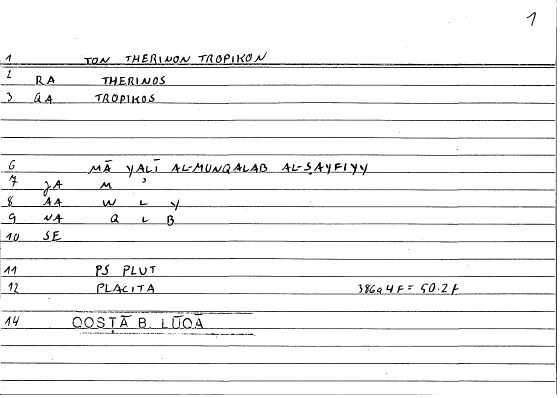 1
1 TON THERINON TROPIKON
2 RA THERINOS
3 QA TROPIKOS
6 MĀ YALĪ AL-MUNQALAB AL-ṢAYFIYY
7 JA M ʾ
8 AA W L Y
9 NA Q L B
10 SE
11 PS PLUT
12 PLACITA 386a4F = 50.2F
14 QOSṬĀ B. LŪQĀ